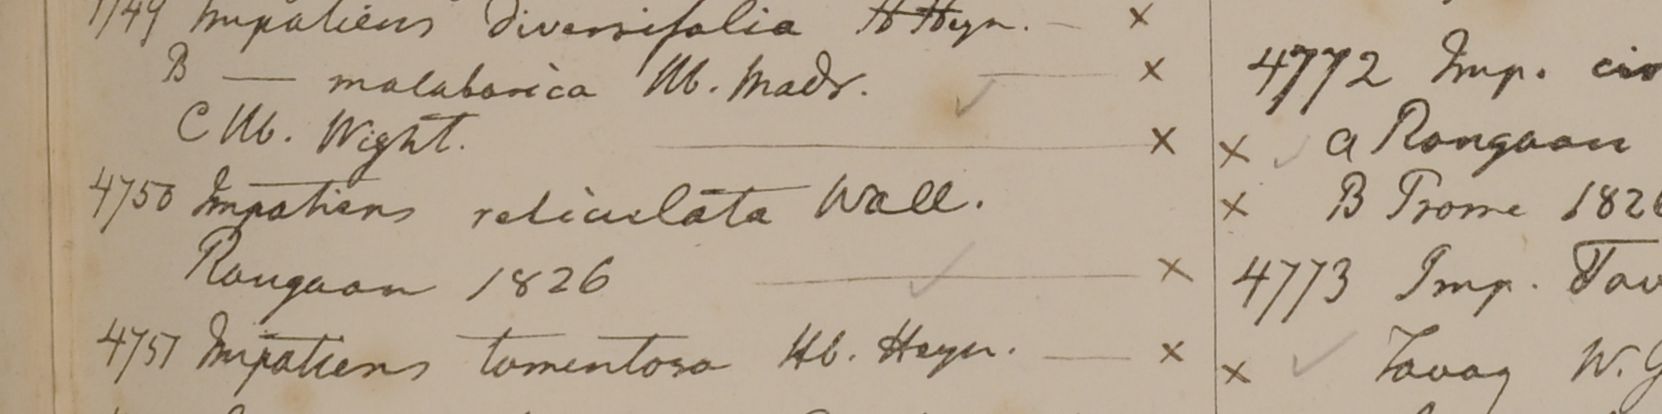 4749 Impatiens diversifolia H Heyn. — ×
B — malabarica Hb. Madr. — ×
C Hb. Wight. — ×
4750 Impatiens reticulata Wall.
Rongoon 1826 — ×
4751 Impatiens tomentosa Hb. Heyn. — ×
4772 Imp.
× a Rongoon
× B Prome 1826
4773 Imp. Tav
× Tavoy W. G